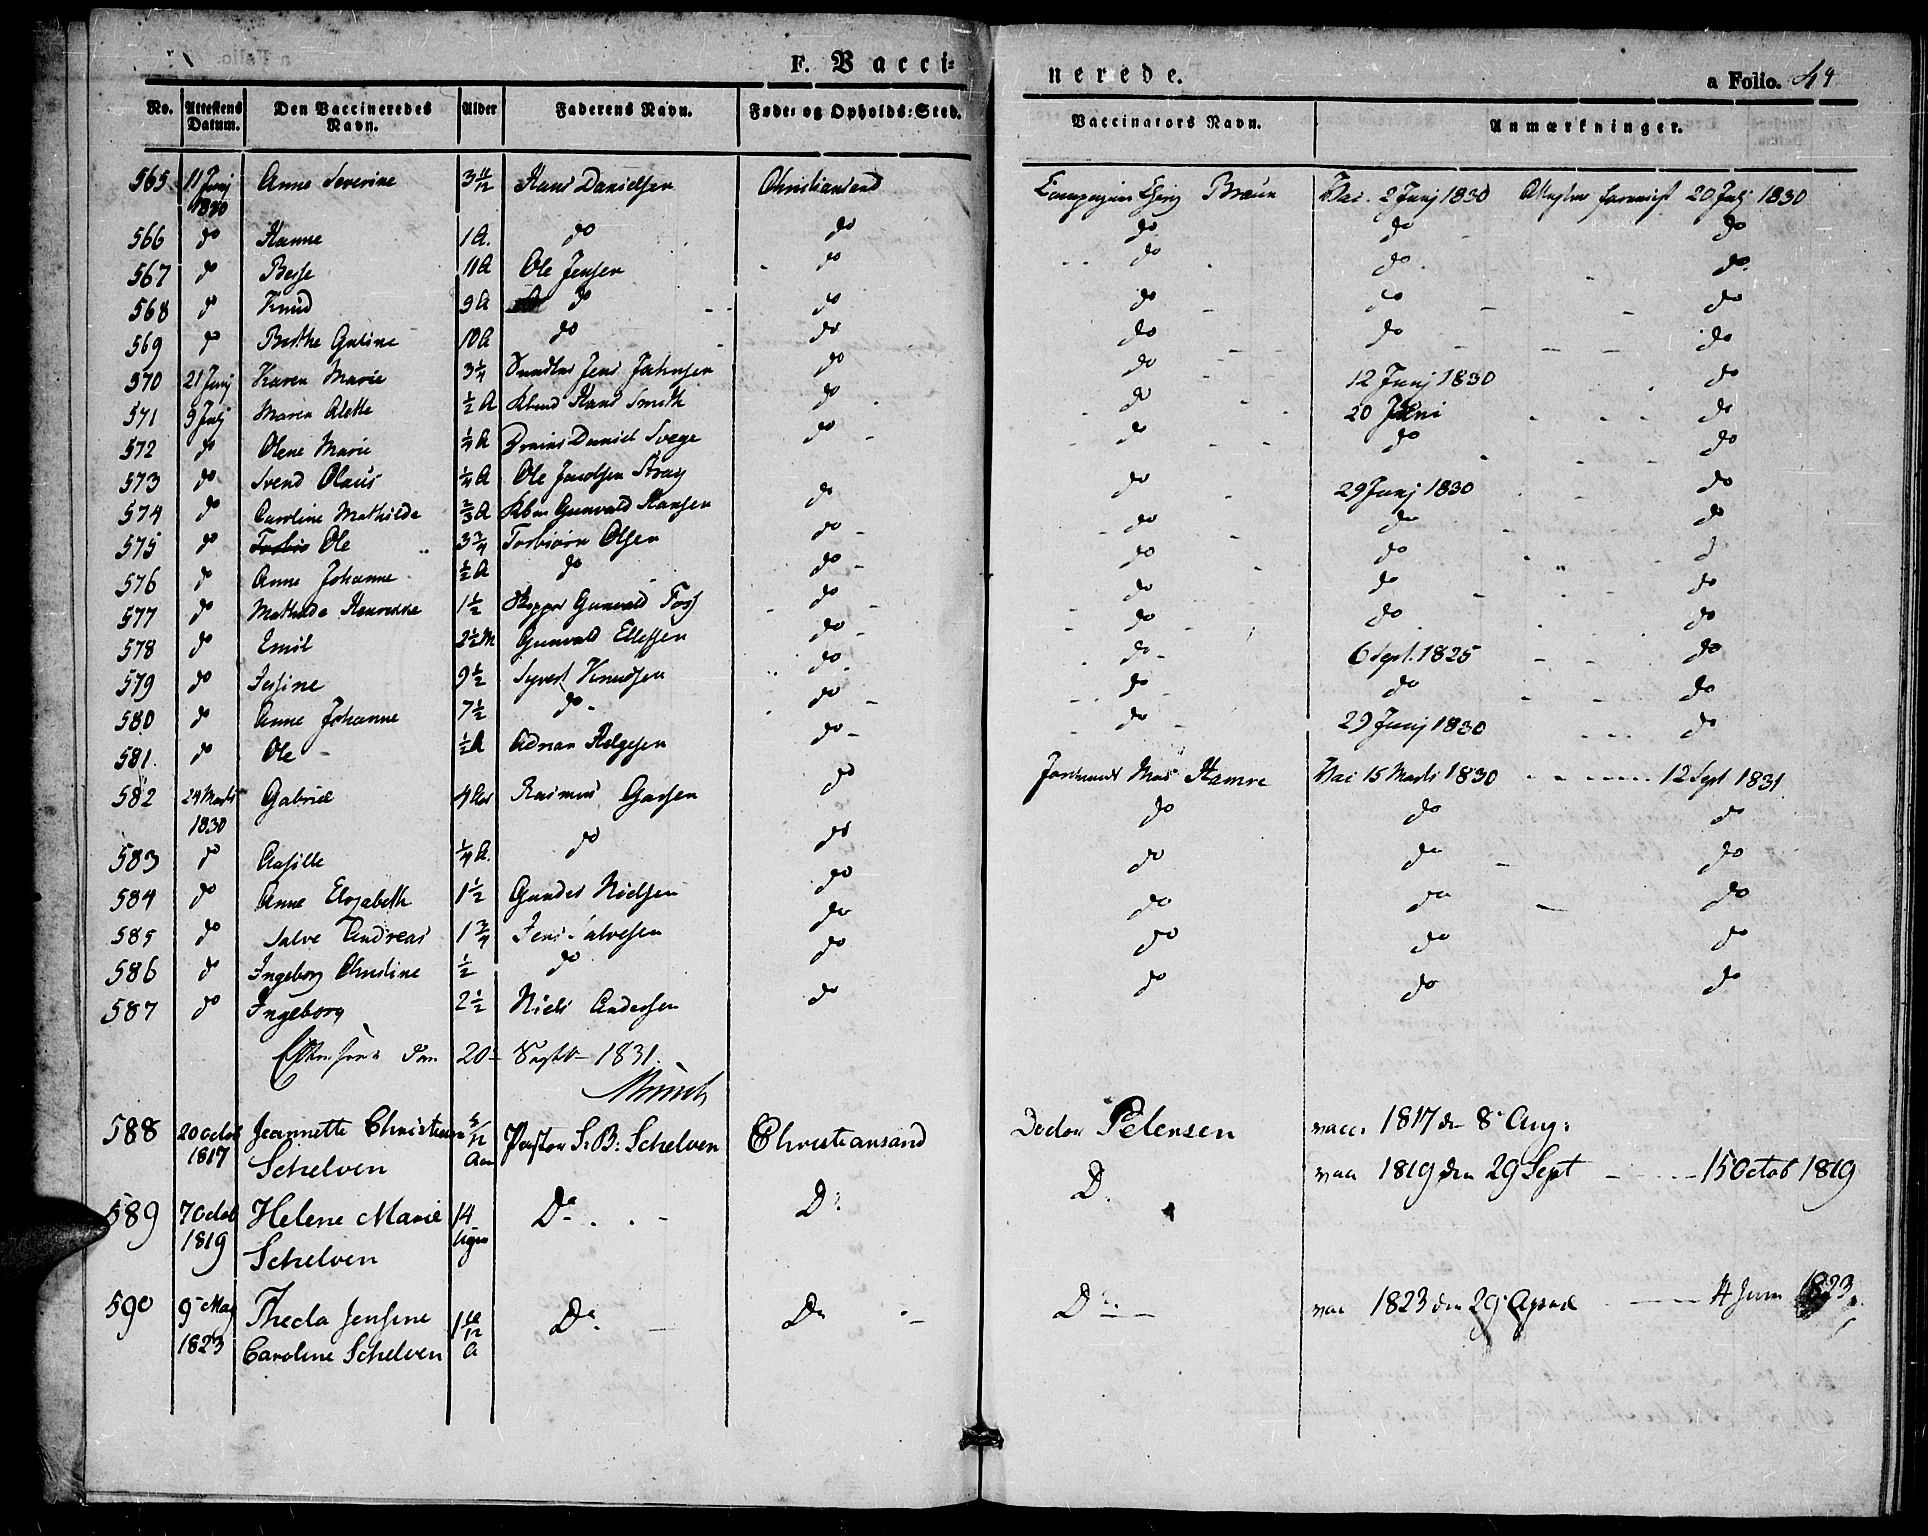 F. Vacci=
nerede.
a Folio. 49
No.
Attestens Datum.
Den Vaccineredes Navn.
Alder
Faderens Navn.
Føde= og Opholds=Sted.
Vaccinators Navn.
Anmærkninger.
565 11 Junj 1830 Anne Severine 3 11/12 Hans Danielsen Christiansand Braun Vac. 2 Junj 1830 20 Julj 1830
566 do Hanne 1 A. do do do do do
567 do 11 A Ole Jensen do do do do
568 do Knud 9 A do do do do do
569 do Berthe Guline 10 A do do do do do
570 21 Junj Karen Marie 3 1/4 Jens Jahnsen do do 12 Junj 1830 do
571 9 Julj Maren Alette 1/2 A Hans Smith do do 20 Juni do
572 do Olene Marie 1/4 A Daniel Svege do do do do
573 do Svend Olaus 1/4 A Ole Jacobsen Stray do 29 Junj 1830 do
574 do Caroline Mathilde 2/3 A Gunvald Hansen do do do do
575 do Ole 3 3/4 Torbiörn Olsen do do do do
576 do Anne Johanne 1/2 A do do do do do
577 do Mathilde 1 1/2 Gunvald Foss do do do do
578 do Emil 2 1/2 M Gunvald Ellefsen do do 6 Sept. 1825 do
579 do Jessine 9 1/2 Syvert Knudsen do do do do
580 do Anne Johanne 7 1/2 do do do 29 Junj 1830 do
581. do Ole 1/2 A Adrian Helgesen do
582 24 Marts 1830 Gabriel 4 Aar Rasmus do Hamre Vac 15 Marts 1830 12 Sept 1831
583 do Aasille 1/4 A. do do do do do
584 do Anne Elisabeth 1 1/2 Gunder Nielsen do do do do
585 do Salve Andreas 1 3/4 Jens Salvesen do do do do
586 do Ingeborg Christine 1/2 do do do do do
587 do Ingeborg 2 1/2 Niels Andersen do do do do
20 Septbr 1831.
Münch
588 20 Octob 1817 Jeannette Christiane Schelven 5/12 Aar Pastor S. B: Schelven Christiansand Doctor Petersen vacc. 1817 den 8 Aug:
589 7 Octob 1819 Helene Marie Schelven 14 Uger Do D: D. vacc 1819 den 29 Sept 15 Octob 1819
590 9 Maj 1823 Theda Jensine Caroline Schelven 1 10/12 A Do Do Do vac 1823 den 29 April 4 Juni 1823